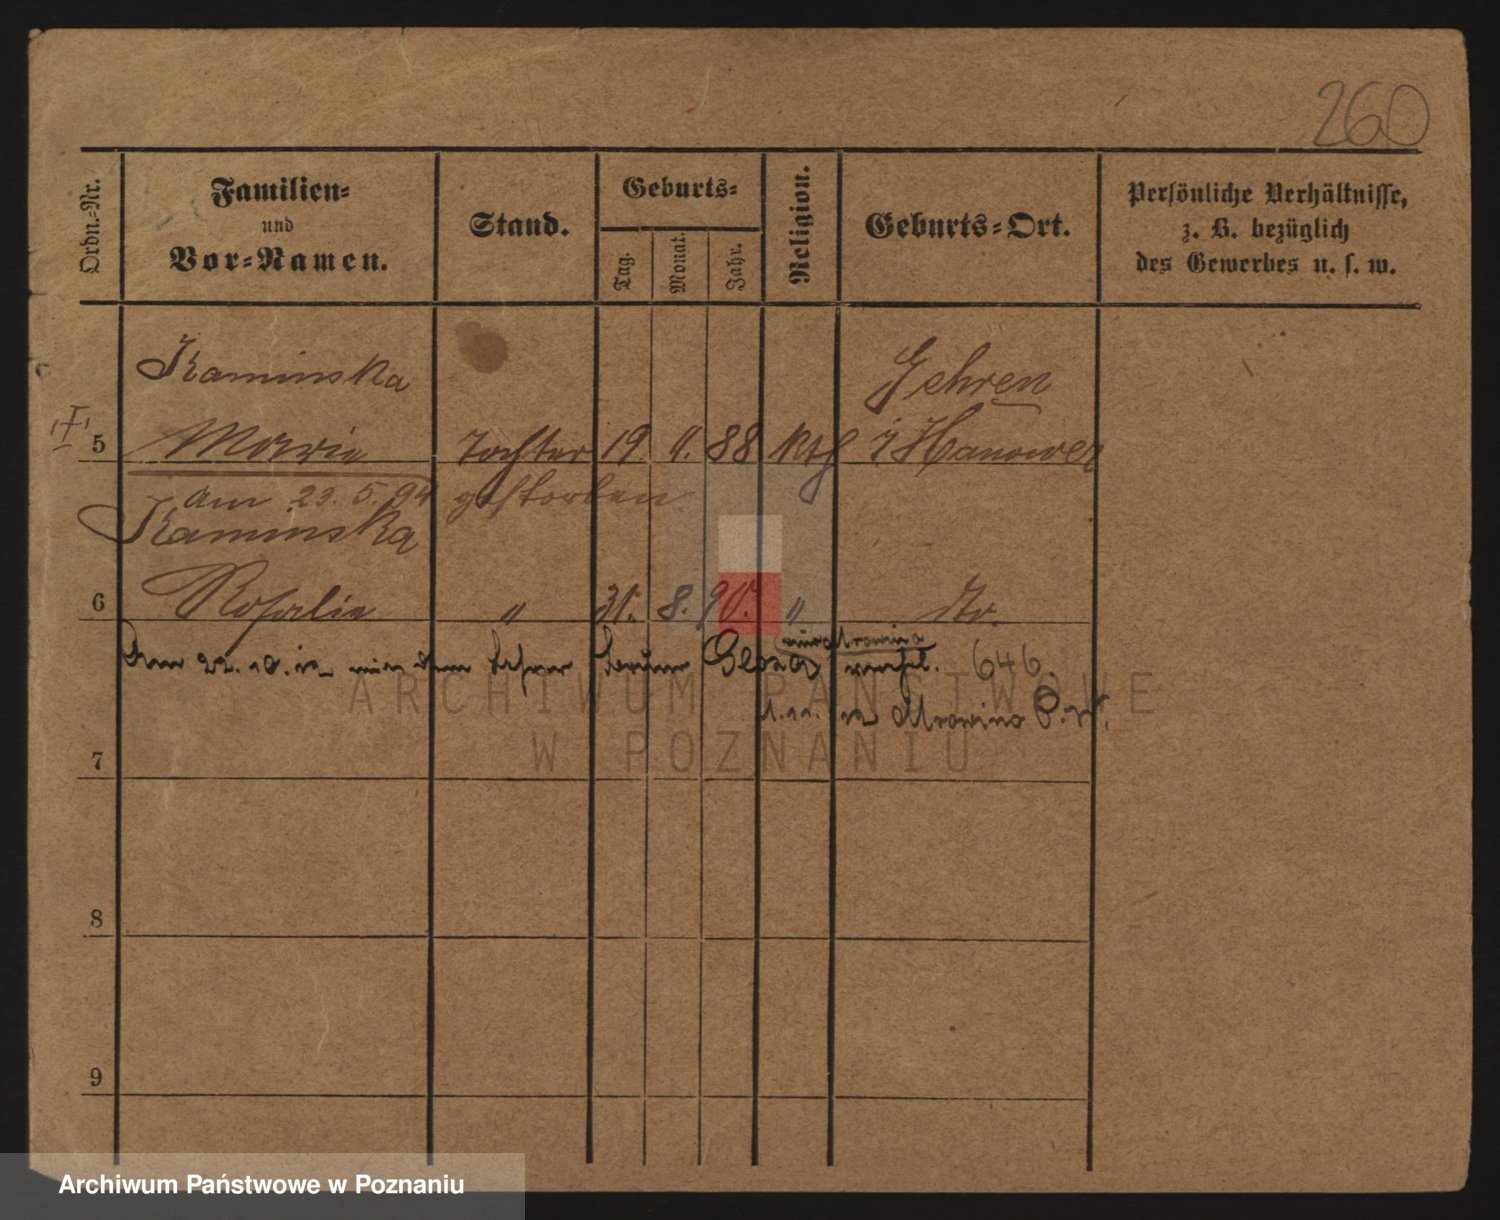 260
Ordn.-Nr.
Familien-
und
Vor-Namen.
Stand.
Geburts-
Tag.
Monat.
Jahr.
Religion.
Geburts-Ort.
Persönliche Verhältnisse,
z. B. bezüglich
des Gewerbes u. s. w.
Kaminska Gehren
5 Marie Tochter 19 88 Kth i Hanower
am 23. 5. 94 gestorben
Kaminska
6 Rosalie " 31. 8. 90. " dto.
Am 22. 10. 12 mit dem Lehrer Bruno verh. 646
1. 11. 12
7
8
9
ARCHIWUM PAŃSTWOWE
W POZNANIU
Archiwum Państwowe w Poznaniu